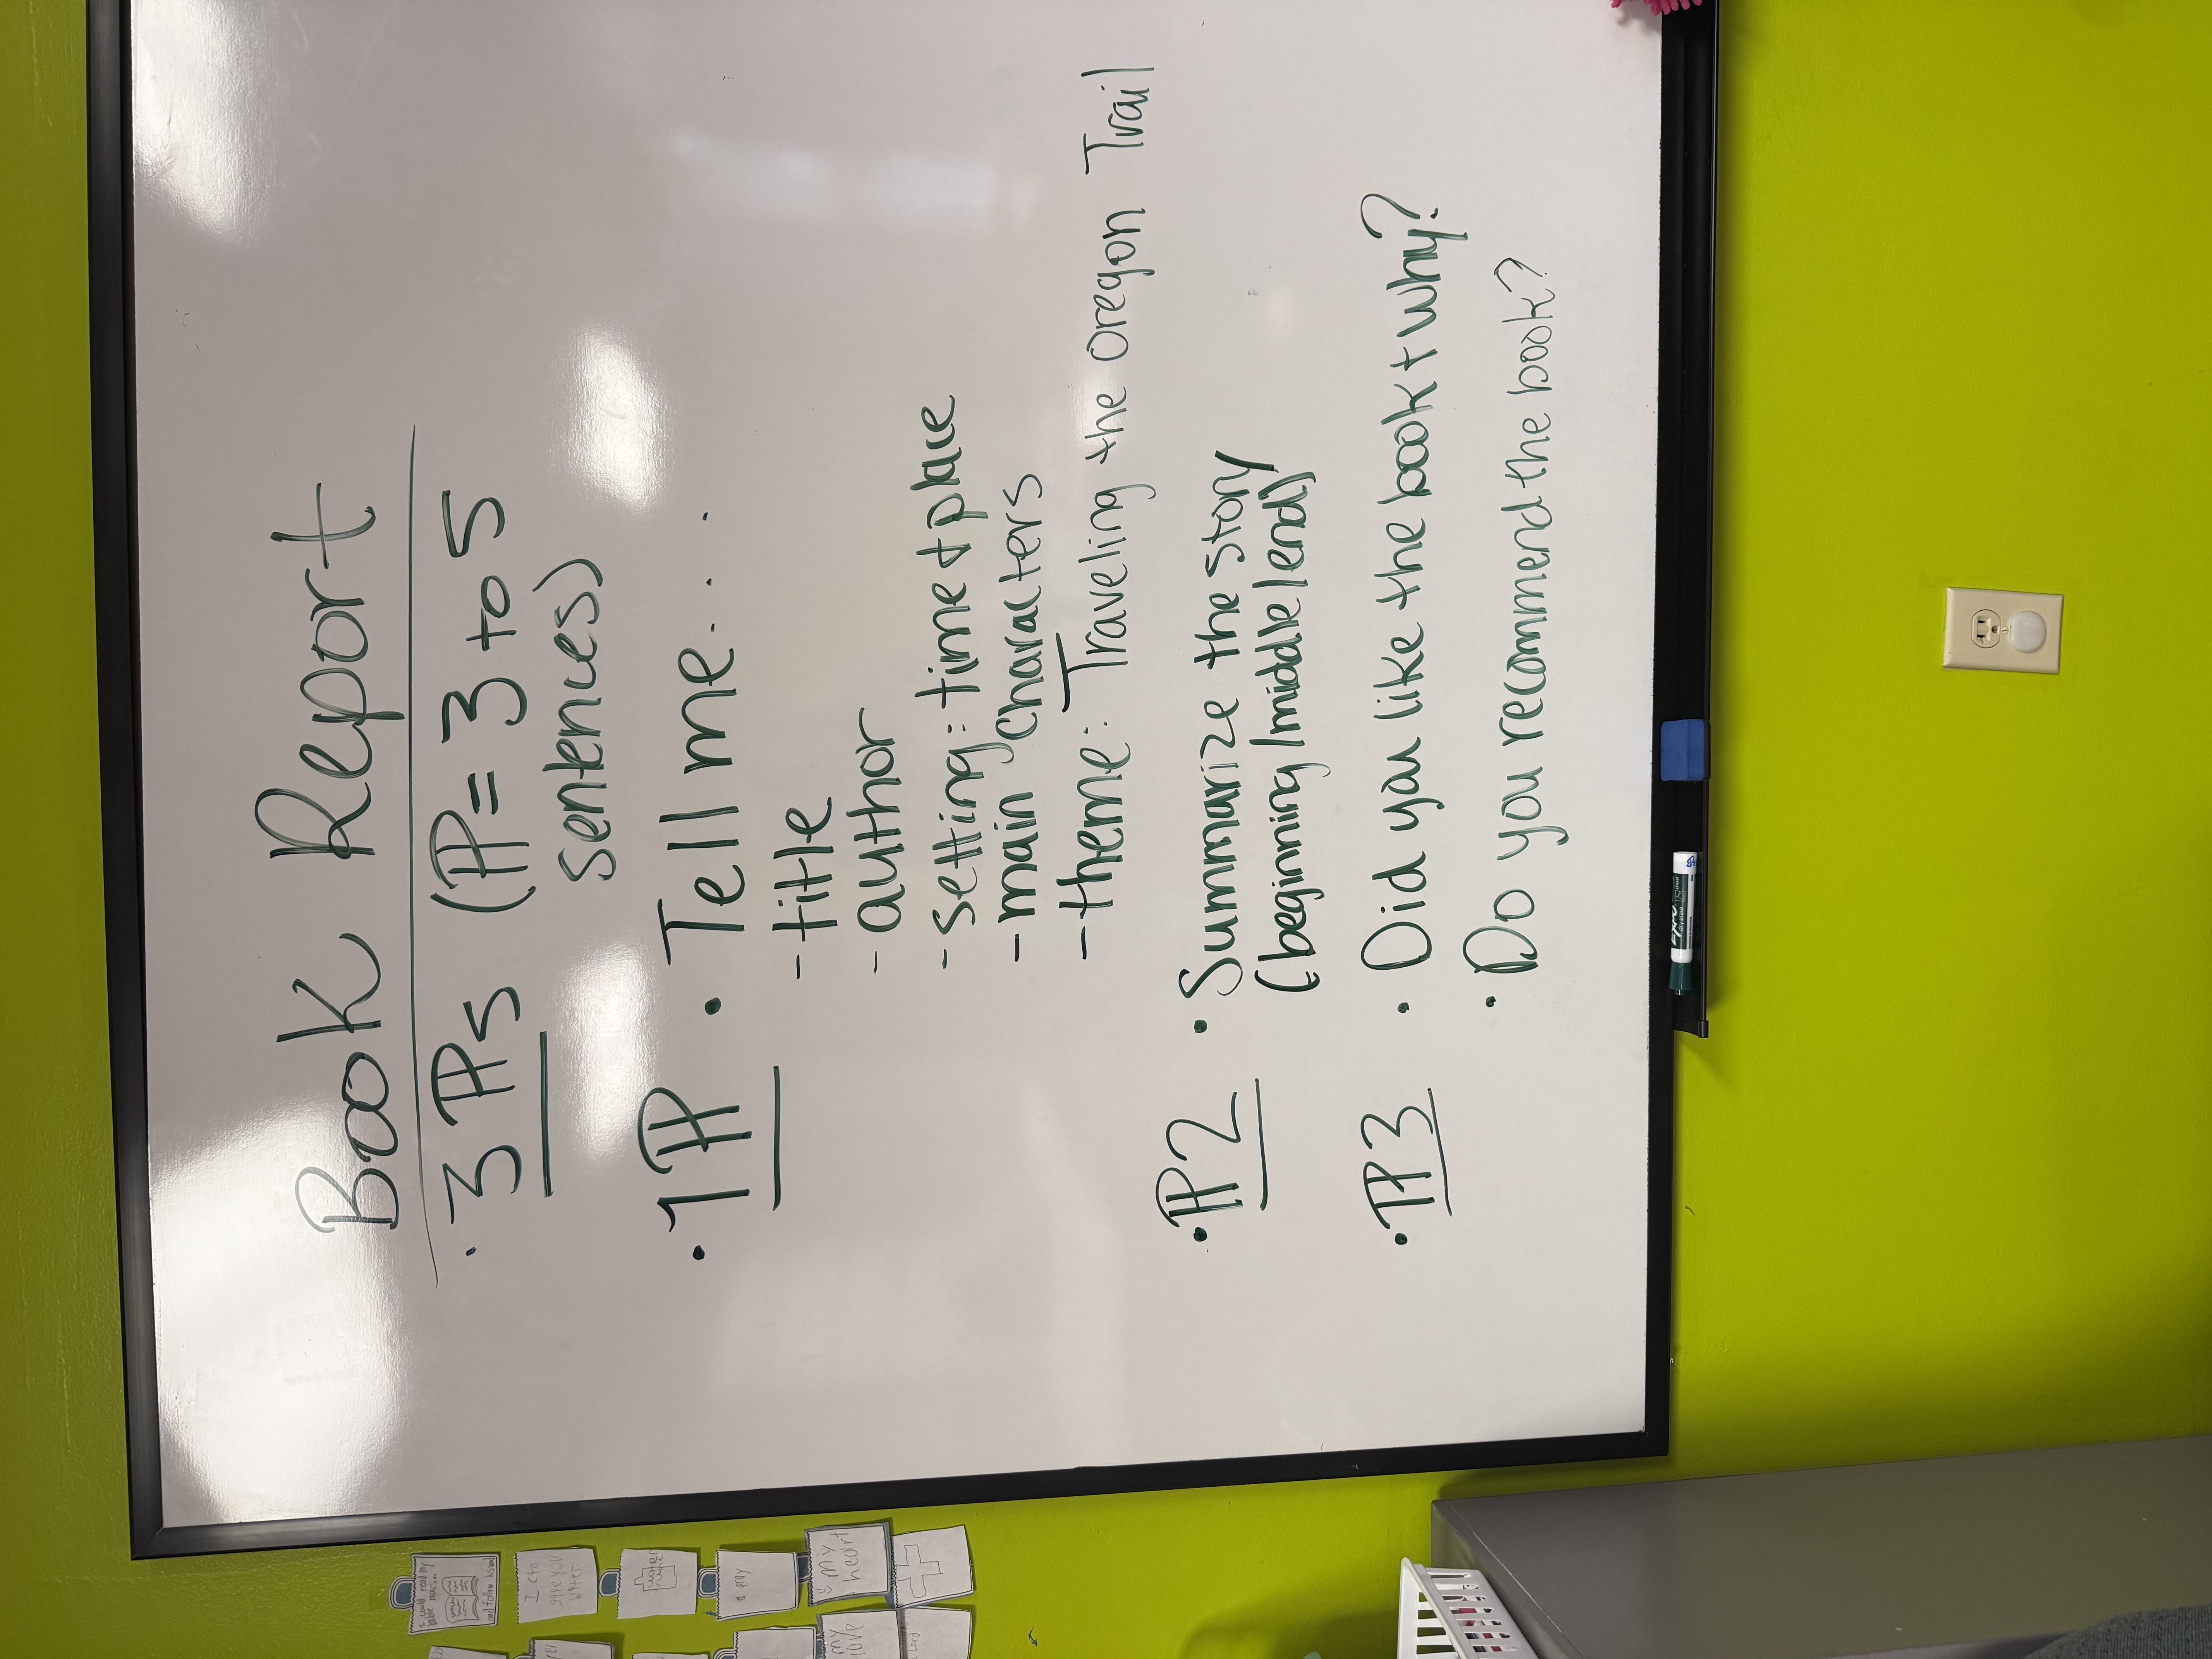 Book Report
· 3 Ps (P = 3 to 5
sentences)
· 1 P · Tell me....
- title
- author
- setting: time + place
- main characters
- theme: Traveling the Oregon Trail
· P2 · Summarize the story
(beginning/middle/end)
· P3 · Did you like the book + why?
· Do you recommend the book?
I can
give you
my
heart
my
love
Lord